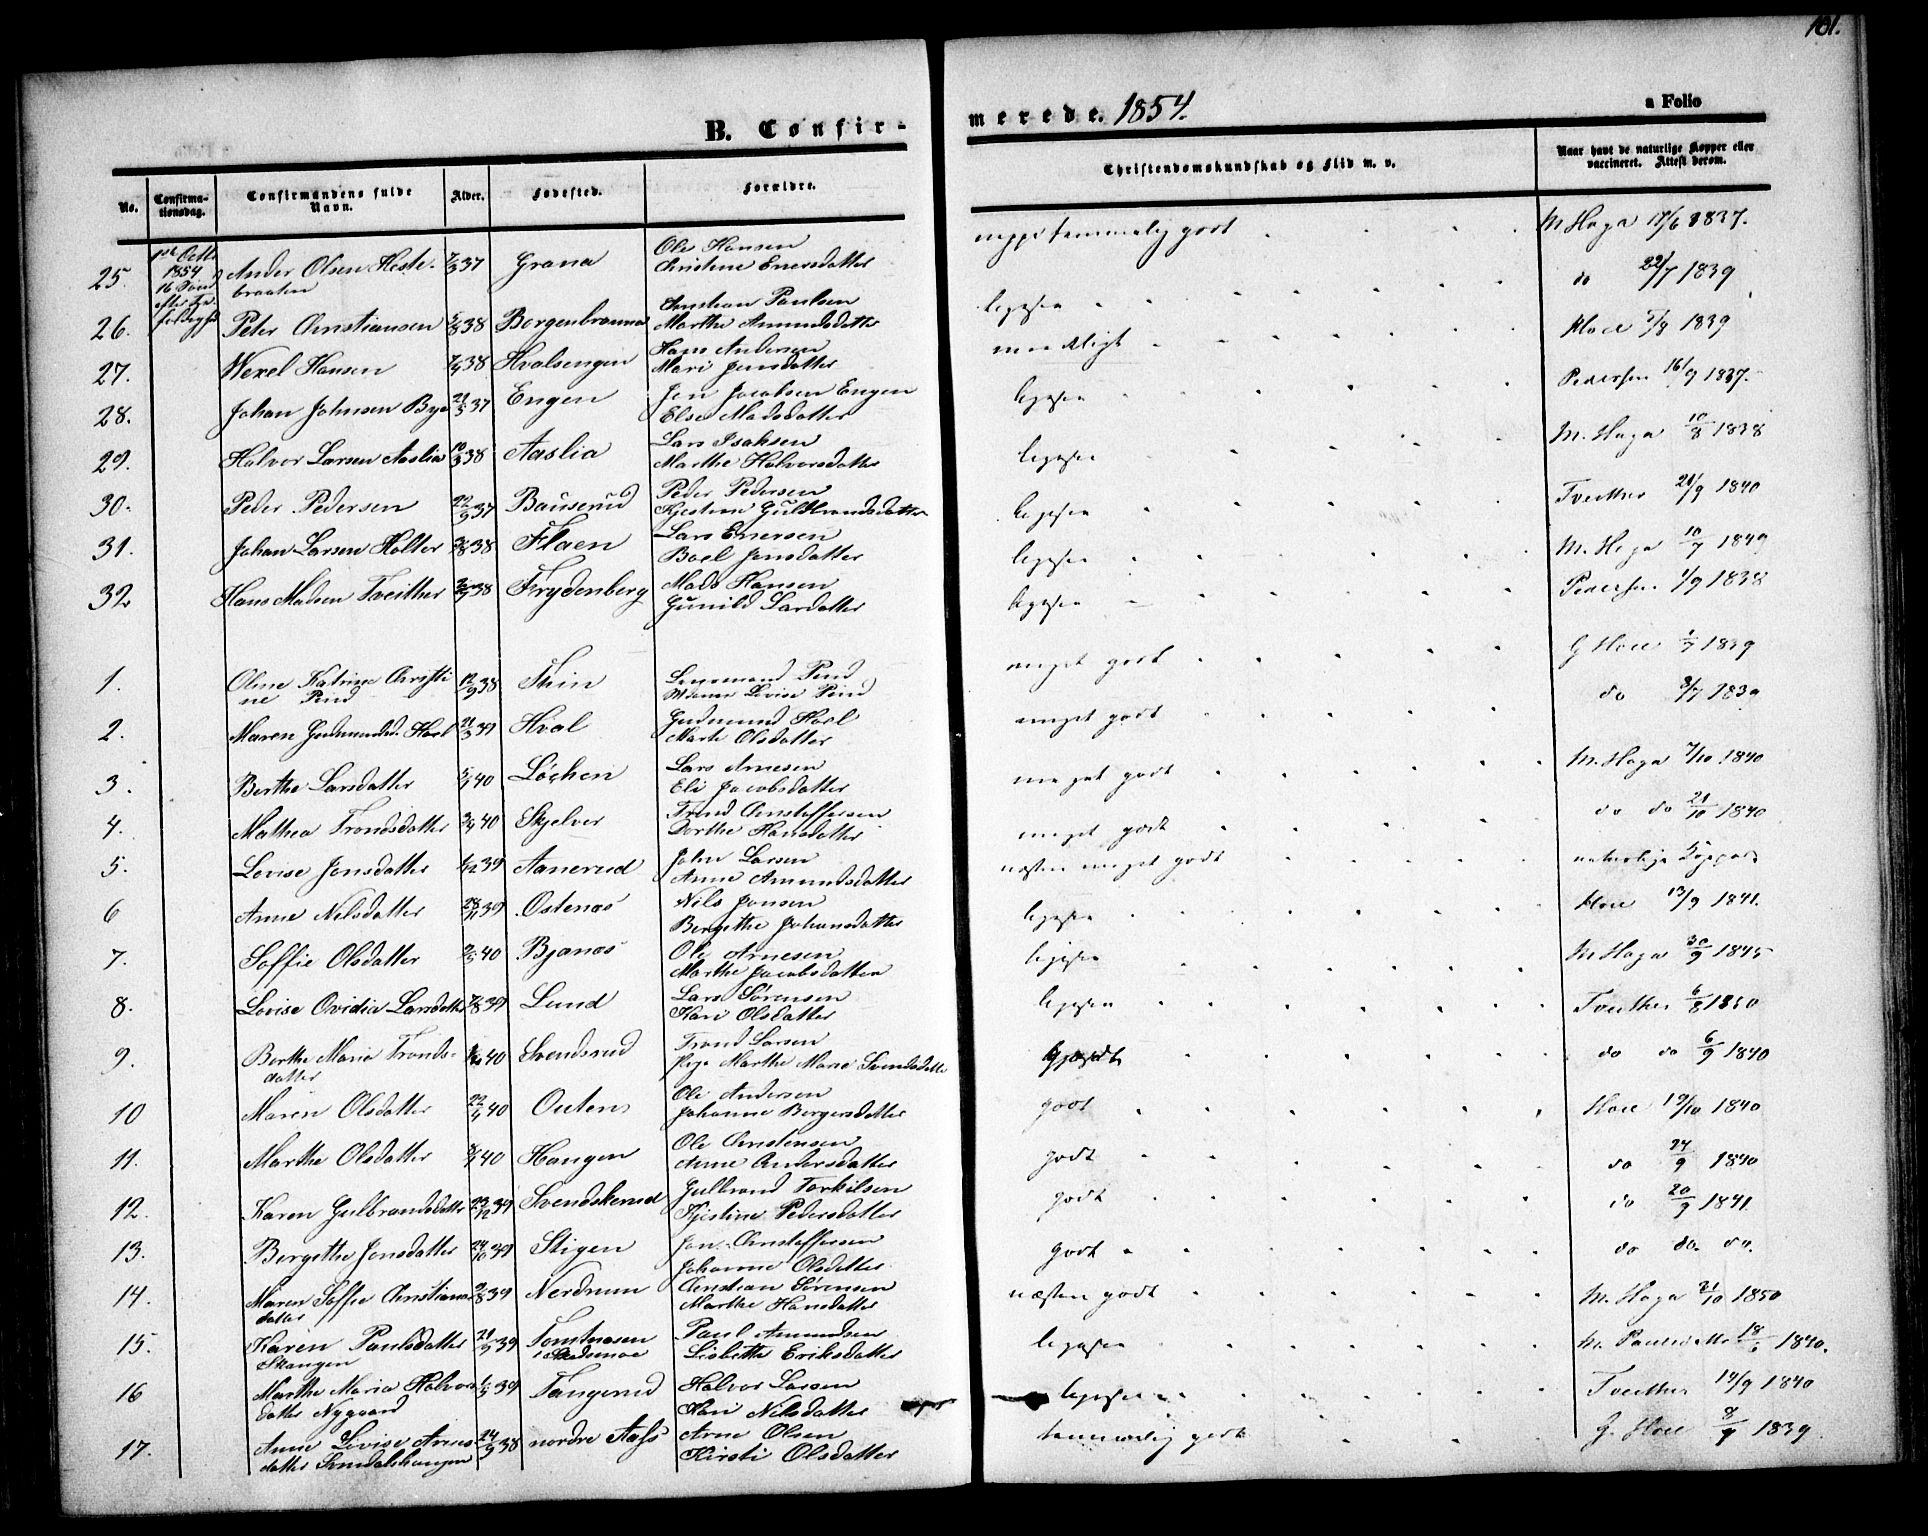 101.
B. Confir-
merede. 1854.
a Folio
No.
Confirma-
tionsdag.
Confirmandens fulde
Navn.
Alder.
Fødested.
Forældre.
Christendomskundskab og Flid m. v.
Naar havt de naturlige Kopper eller
vaccineret. Attest derom.
1854
25. Anders Olsen Heste-
braaten 37 Grana Ole Hansen
Christine Enersdatter
temmelig godt M Haga 17/6 1837.
26. Peter Christiansen 38 Borgenbraaten Christian Paulsen
Marthe Amundsdatter
ligesen do 22/7 1839
27. Wexel Hansen 38 Hvalsengen Hans Andersen
Mari Jensdatter
Hoel 5/8 1839
28. Johan Johnsen Bye 21/5 37 Engen Jon Jacobsen Engen
Else Madsdatter
ligesen Pedersen 16/9 1837.
29. Halvor Larsen Aaslia 38 Aaslia Lars Isaksen
Marthe Halvorsdatter
ligesen M. Haga 10/8 1838
30. Peder Pedersen 22/9 37 Bauserud Peder Pedersen
Kjestine Guldbrandsdatter
ligesen Tveither 21/9 1840
31. Johan Larsen Holter 38 Flaen Lars Enersen
Boel Jonsdatter
ligesen M. Haga 10/7 1849
32 Hans Madsen Tveither 38 Frydenberg Mads Hansen
Gunild Larsdatter
ligesen Pedersen 1/9 1838
1. Oline Katrine Christi
ne Pind 12/9 38 Thin Lensmand Pind
Maren Lovise Pind
meget godt G Hoel 1839
2. Maren Gudmundsd. Hoel 21/3 39 Hval Gudmund Hoel
Marte Olsdatter
meget godt do 3/7 1839
3. Berthe Larsdatter 40 Løchen Lars Arnesen
Eli Jacobsdatter
meget godt M. Haga 7/10 1840
4. Mathea Trondsdatter 40 Skjelver Trond Christoffersen
Dorthe Hansdatter
meget godt do do 21/10 1840
5. Lovise Jonsdatter 39 Aanerud John Larsen
Anne Amundsdatter
næsten meget godt naturlige Kopper
6 Anne Nilsdatter 28/11 39 Ostenas Nils Jonsen
Bergithe Johansdatter
ligesen Hoel 13/9 1841.
7. Soffie Olsdatter 40 Bjanas Ole Arnesen
Marthe Jacobsdatter
ligesen M Haga 30/9 1845
8. Lovise Ovidia Larsdatter 39 Lund Lars Sørensen
Kari Olsdatter
ligesen Tveither 6/8 1850
9. Berthe Maria Tronds-
datter 40 Svendsrud Trond Larsen
Pige Marthe Marie Svendsdatter
do do 6/9 1840
10 Maren Olsdatter 40 Outens Ole Andersen
Johanne Borgersdatter
godt Hoel 19/10 1840
11. Marthe Olsdatter 40 Haugen Ole Christensen
Anne Andersdatter
godt do 24/9 1840
12. Karen Gulbrandsdatter 23/12 39 Svendskerud Gulbrand Torkilsen
Kjestine Pedersdatter
godt do 20/9 1841.
13. Bergethe Jonsdatter 24/10 39 Stigen Jon Christoffersen
Johanne Olsdatter
godt do do. do.
14. Maren Soffie Christians
datter 39 Nerdrum Christian Sørensen
Marthe Hansdatter
næsten godt M. Haga 21/10 1850
15. Karen Paulsdatter
Skaugen 21/9 39 Paul Amundsen
Lisbethe Eriksdatter
ligesen 1840.
16 Marthe Maria Halvors
datter Nygaard 39 Tangerud Halvor Larsen
Kari Nilsdatter
ligesen Tveither 14/9 1840
17. Anne Lovise Arnes
datter 24/9 38 nordre Aass Arne Olsen
Kirsti Olsdatter
temmelig godt G. Hoel 1839.